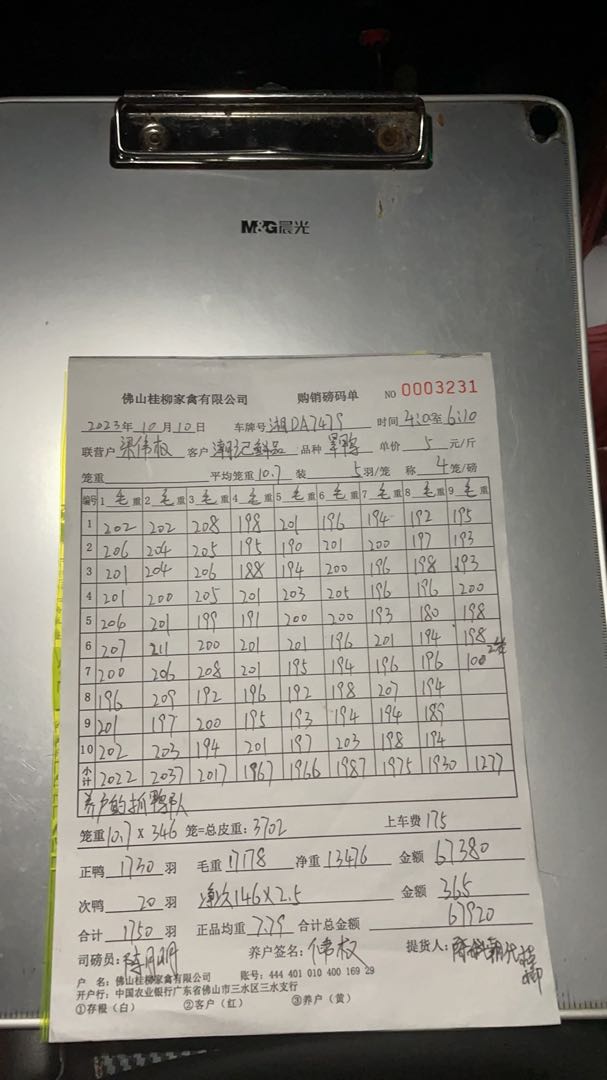 M&G晨光
佛山桂柳家禽有限公司 购销磅码单 NO 0003231
2023年10月10日 车牌号 湘DA7479 时间 4:10至6:10
联营户 梁伟权 客户 鲜品 品种 单价 5 元/斤
笼重 平均笼重 10.7 装 5 羽/笼 称 4 笼/磅
编号 1 毛重 2 毛重 3 毛重 4 毛重 5 毛重 6 毛重 7 毛重 8 毛重 9 毛重
1 202 202 208 198 201 196 194 192 195
2 206 204 205 195 190 201 200 197 193
3 201 204 206 188 194 200 196 198 193
4 201 200 205 201 203 205 196 196 200
5 206 201 199 191 200 200 193 180 198
6 207 211 200 201 201 196 201 194 198
7 200 206 208 201 195 194 196 196 100 2笼
8 196 209 192 196 192 198 207 194
9 201 197 200 195 193 194 194 189
10 202 203 194 201 197 203 198 194
小计 2022 2037 2017 1967 1966 1987 1975 1930 1277
养户的抓鸭队
笼重 10.7 x 346 笼=总皮重: 3702 上车费 175
正鸭 1730 羽 毛重 17178 净重 13476 金额 67380
次鸭 20 羽 146 x 2.5 金额 365
合计 1750 羽 正品均重 7.79 合计总金额 67920
司磅员: 养户签名: 伟权 提货人:
户 名: 佛山桂柳家禽有限公司 账号: 444 401 010 400 169 29
开户行: 中国农业银行广东省佛山市三水区三水支行
①存根（白） ②客户（红） ③养户（黄）